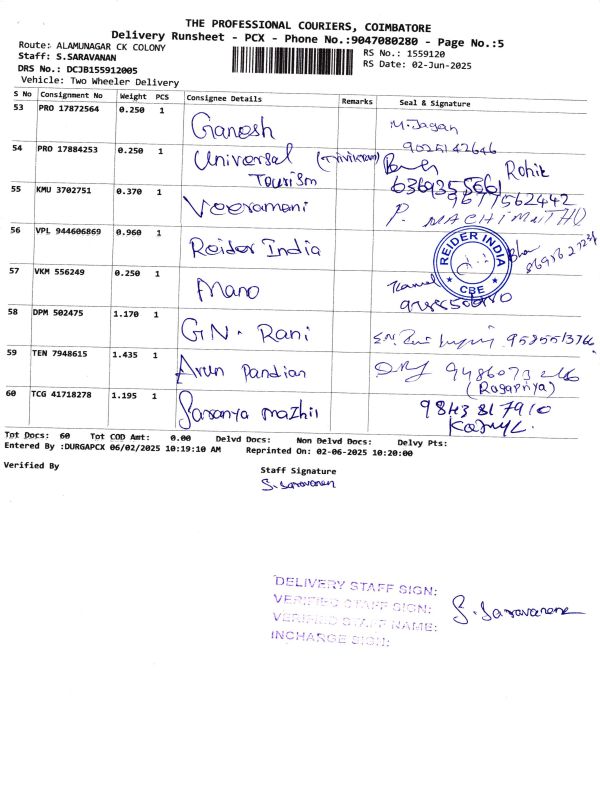 THE PROFESSIONAL COURIERS, COIMBATORE
Delivery Runsheet - PCX - Phone No.:9047080280 - Page No.:5
Route: ALAMUNAGAR CK COLONY
RS No.: 1559120
Staff: S.SARAVANAN
RS Date: 02-Jun-2025
DRS No.: DCJB155912005
Vehicle: Two Wheeler Delivery
S No Consignment No Weight PCS Consignee Details Remarks Seal & Signature
53 PRO 17872564 0.250 1 Ganesh M.Jagan
9025142646
54 PRO 17884253 0.250 1 Universal (Trivikram) Rohik
Tourism 6369355661
55 KMU 3702751 0.370 1 Veeramani 9677562442
P.
56 VPL 944606869 0.960 1 Reider India REIDER INDIA CBE
57 VKM 556249 0.250 1 Mano
58 DPM 502475 1.170 1 G.N. Rani 9585513766
59 TEN 7948615 1.435 1 Arun Pandian
60 TCG 41718278 1.195 1 Saranya mazhil 9843817910
Tot Docs: 60 Tot COD Amt: 0.00 Delvd Docs: Non Delvd Docs: Delvy Pts:
Entered By :DURGAPCX 06/02/2025 10:19:10 AM Reprinted On: 02-06-2025 10:20:00
Verified By
Staff Signature
S. Saravanan
DELIVERY STAFF SIGN:
VERIFIED STAFF SIGN:
S. Saravanan
VERIFIED STAFF NAME:
INCHARGE SIGN: